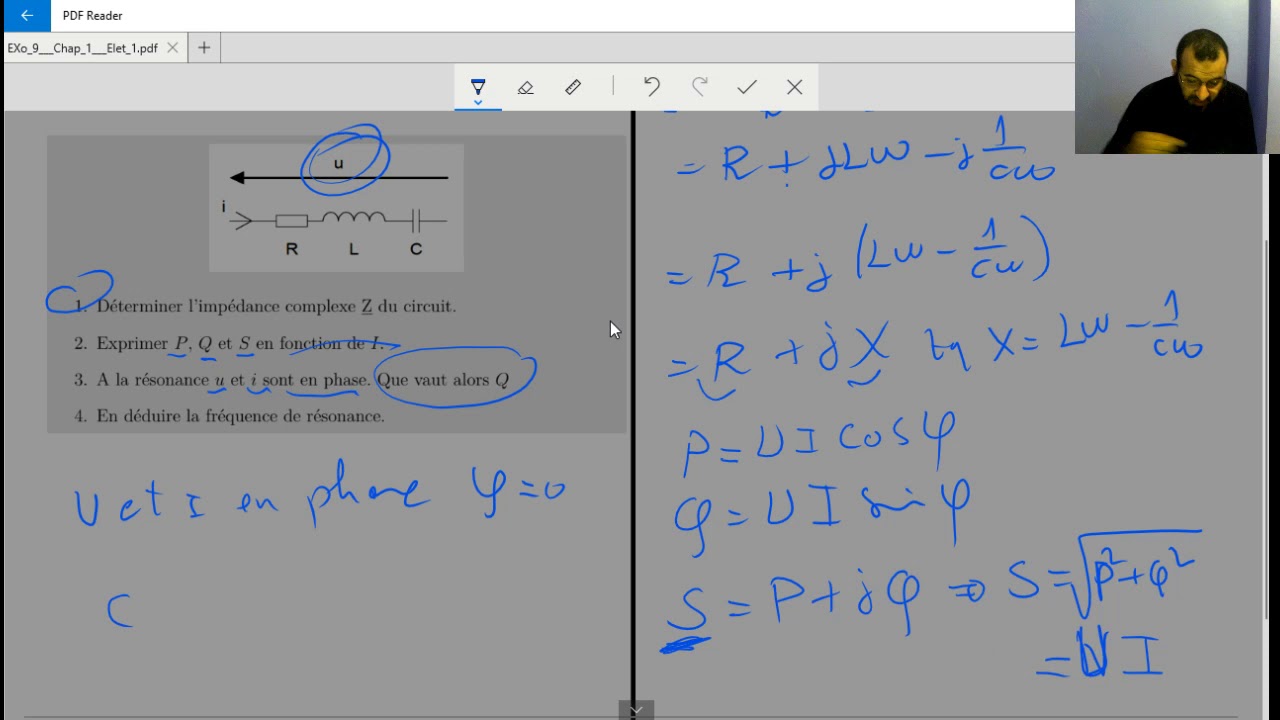 PDF Reader
EXo_9___Chap_1___Elet_1.pdf
u
i
R L C
1. Déterminer l'impédance complexe Z du circuit.
2. Exprimer P, Q et S en fonction de I.
3. A la résonance u et i sont en phase. Que vaut alors Q
4. En déduire la fréquence de résonance.
U et I en phase φ=0
= R + jLω - j 1/cω
= R + j (Lω - 1/cω)
= R + j X tq X = Lω - 1/cω
P = U I cos φ
Q = U I sin φ
S = P + jQ ⇒ S = √(P²+Q²)
= U I